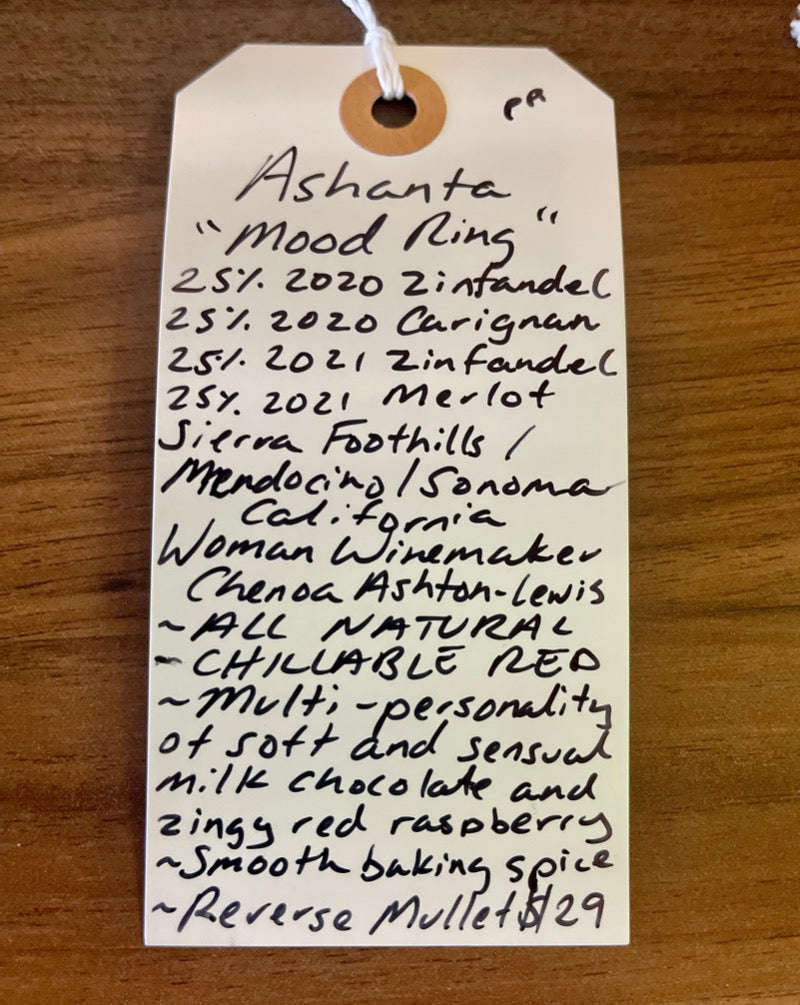 Ashanta
"Mood Ring"
25% 2020 Zinfandel
25% 2020 Carignan
25% 2021 Zinfandel
25% 2021 Merlot
Sierra Foothills /
Mendocino / Sonoma
California
Woman Winemaker
Chenoa Ashton-Lewis
~ALL NATURAL
~CHILLABLE RED
~Multi-personality
of soft and sensual
milk chocolate and
zingy red raspberry
~Smooth baking spice
~Reverse Mullet $29